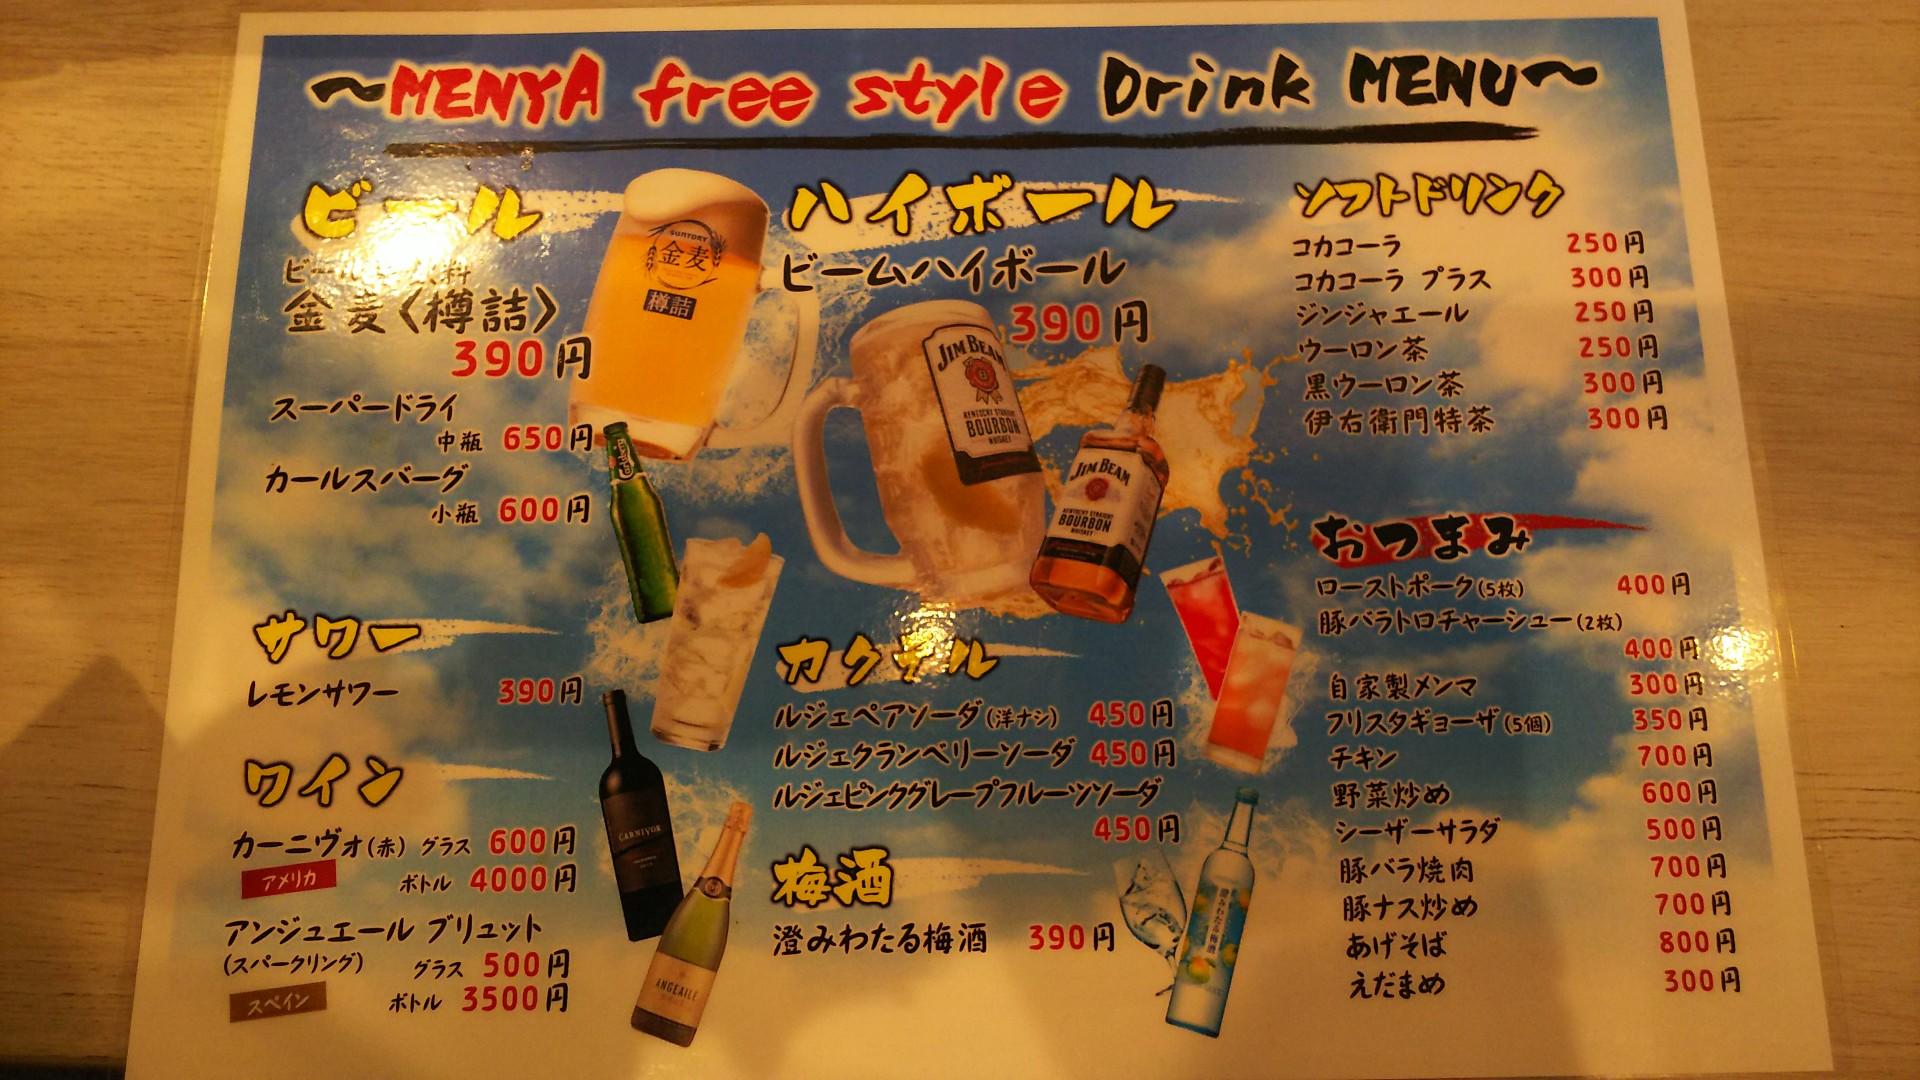 ～MENYA free style Drink MENU～
ビール
金麦〈樽詰〉
390円
スーパードライ
中瓶 650円
カールスバーグ
小瓶 600円
SUNTORY
金麦
樽詰
サワー
レモンサワー 390円
ワイン
カーニヴォ(赤) グラス 600円
アメリカ ボトル 4000円
アンジュエール ブリュット
(スパークリング) グラス 500円
スペイン ボトル 3500円
CARNIVOR
ANGEAILE
ハイボール
ビームハイボール
390円
JIM BEAM
KENTUCKY STRAIGHT
BOURBON
WHISKEY
JIM BEAM
KENTUCKY STRAIGHT
BOURBON
WHISKEY
カクテル
ルジェペアソーダ(洋ナシ) 450円
ルジェクランベリーソーダ 450円
ルジェピンクグレープフルーツソーダ
450円
梅酒
澄みわたる梅酒 390円
澄みわたる梅酒
ソフトドリンク
コカコーラ 250円
コカコーラ プラス 300円
ジンジャエール 250円
ウーロン茶 250円
黒ウーロン茶 300円
伊右衛門特茶 300円
おつまみ
ローストポーク(5枚) 400円
豚バラトロチャーシュー(2枚)
400円
自家製メンマ 300円
フリスタギョーザ(5個) 350円
チキン 700円
野菜炒め 600円
シーザーサラダ 500円
豚バラ焼肉 700円
豚ナス炒め 700円
あげそば 800円
えだまめ 300円